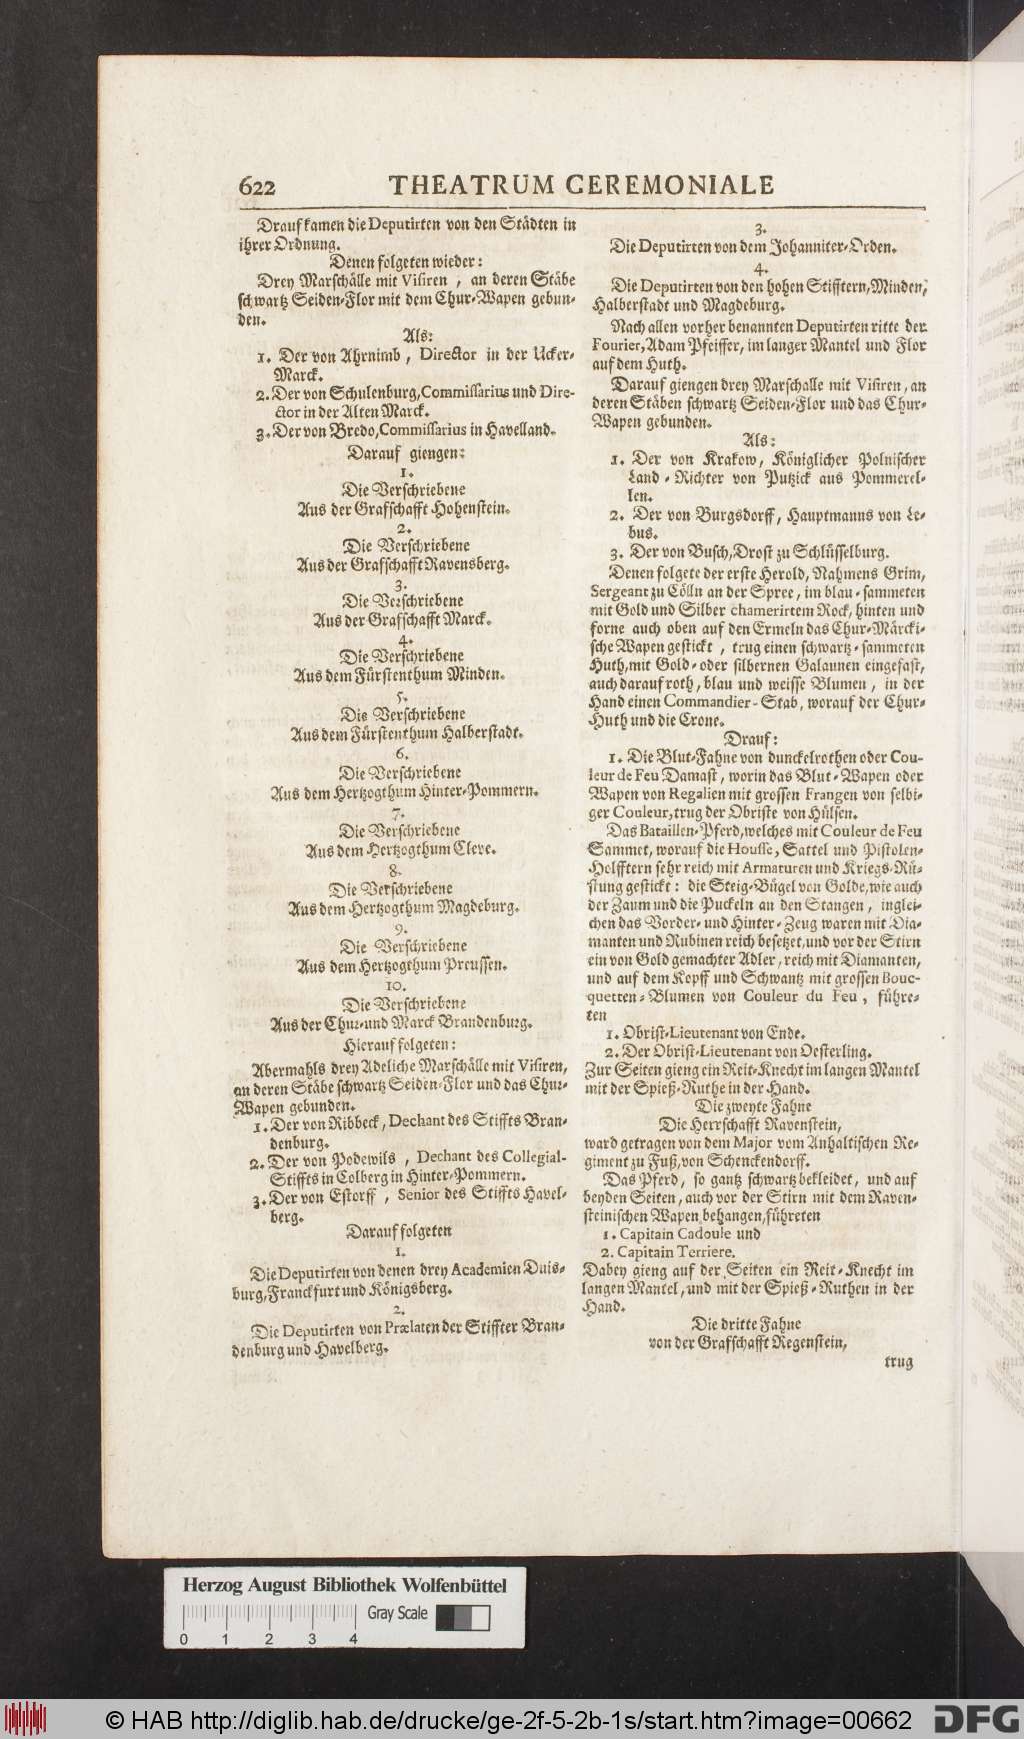 622 THEATRUM CEREMONIALE
Drauf kamen die Deputirten von den Städten in
ihrer Ordnung.
Denen folgeten wieder:
Drey Marschälle mit Visiren, an deren Stäbe
schwartz Seiden-Flor mit dem Chur-Wapen gebun-
den.
Als:
1. Der von Ahrnimb, Director in der Ucker-
Marck.
2. Der von Schulenburg, Commissarius und Dire-
ctor in der Alten Marck.
3. Der von Bredo, Commissarius in Havelland.
Darauf giengen:
1.
Die Verschriebene
Aus der Grafschafft Hohenstein.
2.
Die Verschriebene
Aus der Grafschafft Ravensberg.
3.
Die Verschriebene
Aus der Grafschafft Marck.
4.
Die Verschriebene
Aus dem Fürstenthum Minden.
5.
Die Verschriebene
Aus dem Fürstenthum Halberstadt.
6.
Die Verschriebene
Aus dem Hertzogthum Hinter-Pommern.
7.
Die Verschriebene
Aus dem Hertzogthum Cleve.
8.
Die Verschriebene
Aus dem Hertzogthum Magdeburg.
9.
Die Verschriebene
Aus dem Hertzogthum Preussen.
10.
Die Verschriebene
Aus der Chur-und Marck Brandenburg.
Hierauf folgeten:
Abermahls drey Adeliche Marschälle mit Visiren,
an deren Stäbe schwartz Seiden-Flor und das Chur-
Wapen gebunden.
1. Der von Ribbeck, Dechant des Stiffts Bran-
denburg.
2. Der von Podewils, Dechant des Collegial-
Stiffts in Colberg in Hinter-Pommern.
3. Der von Estorff, Senior des Stiffts Havel-
berg.
Darauf folgeten
1.
Die Deputirten von denen drey Academien Duis-
burg, Franckfurt und Königsberg.
2.
Die Deputirten von Prælaten der Stiffter Bran-
denburg und Havelberg.
3.
Die Deputirten von dem Johanniter-Orden.
4.
Die Deputirten von den hohen Stifftern, Minden,
Halberstadt und Magdeburg.
Nach allen vorher benannten Deputirten ritte der
Fourier, Adam Pfeiffer, im langer Mantel und Flor
auf dem Huth.
Darauf giengen drey Marschalle mit Visiren, an
deren Stäben schwartz Seiden-Flor und das Chur-
Wapen gebunden.
Als:
1. Der von Krakow, Königlicher Polnischer
Land-Richter von Putzick aus Pommerel-
len.
2. Der von Burgsdorff, Hauptmanns von Le-
bus.
3. Der von Busch, Drost zu Schlüsselburg.
Denen folgete der erste Herold, Nahmens Grim,
Sergeant zu Cölln an der Spree, im blau-sammeten
mit Gold und Silber chamerirtem Rock, hinten und
forne auch oben auf den Ermeln das Chur-Märcki-
sche Wapen gestickt, trug einen schwartz-sammeten
Huth, mit Gold-oder silbernen Galaunen eingefast,
auch darauf roth, blau und weisse Blumen, in der
Hand einen Commandier-Stab, worauf der Chur-
Huth und die Crone.
Drauf:
1. Die Blut-Fahne von dunckelrothen oder Cou-
leur de Feu Damast, worin das Blut-Wapen oder
Wapen von Regalien mit grossen Frangen von selbi-
ger Couleur, trug der Obriste von Hülsen.
Das Bataillen-Pferd, welches mit Couleur de Feu
Sammet, worauf die Housse, Sattel und Pistolen-
Holfftern sehr reich mit Armaturen und Kriegs-Rü-
stung gestickt: die Steig-Bügel von Golde, wie auch
der Zaum und die Puckeln an den Stangen, inglei-
chen das Vorder- und Hinter-Zeug waren mit Dia-
manten und Rubinen reich besetzet, und vor der Stirn
ein von Gold gemachter Adler, reich mit Diamanten,
und auf dem Kopff und Schwantz mit grossen Bouc-
quetten-Blumen von Couleur du Feu, führe-
ten
1. Obrist-Lieutenant von Ende.
2. Der Obrist-Lieutenant von Oesterling.
Zur Seiten gieng ein Reit-Knecht im langen Mantel
mit der Spieß-Ruthe in der Hand.
Die zweyte Fahne
Die Herrschafft Ravenstein,
ward getragen von dem Major vom Anhaltischen Re-
giment zu Fuß, von Schenckendorff.
Das Pferd, so gantz schwartz bekleidet, und auf
beyden Seiten, auch vor der Stirn mit dem Raven-
steinischen Wapen behangen, führeten
1. Capitain Cadoule und
2. Capitain Terriere.
Dabey gieng auf der Seiten ein Reit-Knecht im
langen Mantel, und mit der Spieß-Ruthen in der
Hand.
Die dritte Fahne
von der Grafschafft Regenstein,
trug
Herzog August Bibliothek Wolfenbüttel
Gray Scale
0 1 2 3 4
© HAB http://diglib.hab.de/drucke/ge-2f-5-2b-1s/start.htm?image=00662 DFG